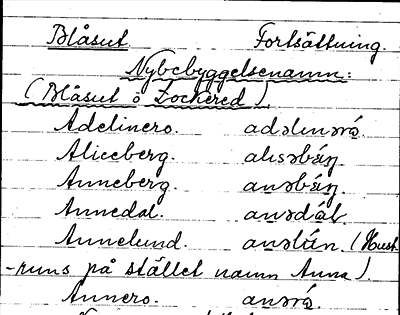 Blåsut. Fortsättning.
Nybebyggelsenamn:
(Blåsut o Lockered)
Adelinero. adəlinəró
Aliceberg. alisəbärj
Anneberg. anəbärj
Annedal. anədál
Annelund. anəlún. (Hust-
-runs på stället namn Anna).
Annero. anəró